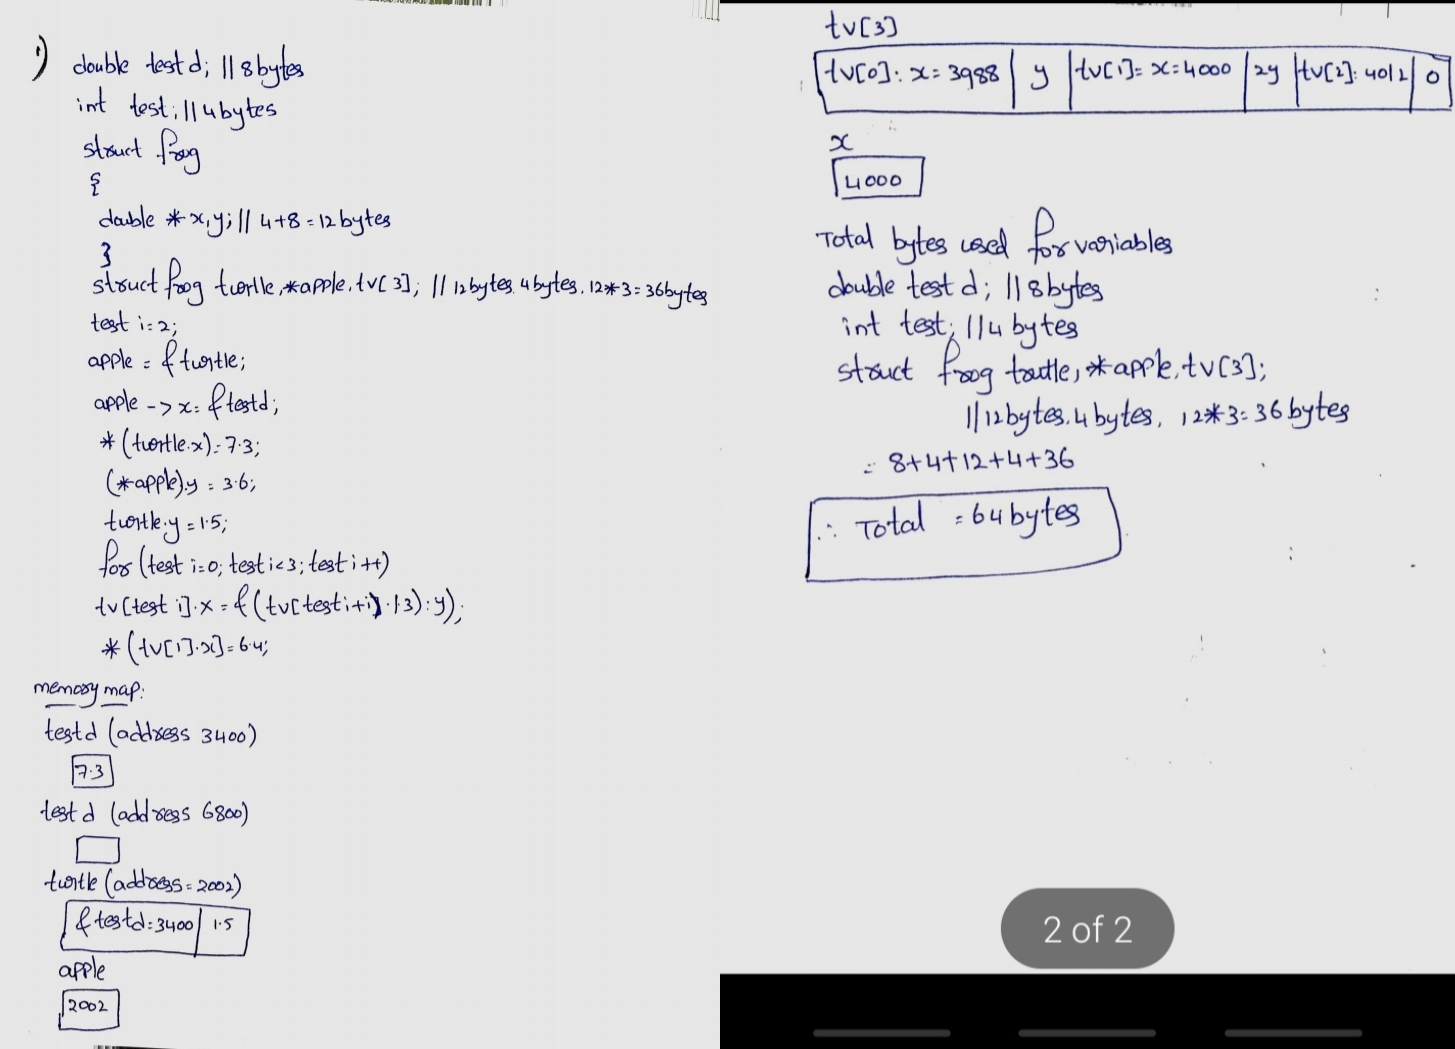 1)
double test d; || 8 bytes
int test; || 4 bytes
struct frog
{
double *x,y; || 4+8 = 12 bytes
}
struct frog turtle,*apple,tv[3]; || 12 bytes, 4 bytes, 12*3=36 bytes
test i=2;
apple = &turtle;
apple -> x = &testd;
*(turtle.x) = 7.3;
(*apple).y = 3.6;
turtle.y = 1.5;
for (test i=0; test i<3; test i++)
tv[test i].x = &(tv[testi+1)·1·3):y);
*(tv[1].x] = 6.4;
memory map:
testd (address 3400)
7.3
test d (address 6800)
turtle (address = 2002)
&testd=3400 | 1.5
apple
2002
tv[3]
tv[0]: x = 3988 | y | tv[1]= x=4000 | 2y | tv[2]: 4012 | 0
x
4000
Total bytes used for variables
double test d; || 8 bytes
int test; || 4 bytes
struct frog toutle, *apple, tv[3];
|| 12 bytes, 4 bytes, 12*3=36 bytes
= 8+4+12+4+36
∴ Total = 64 bytes
2 of 2